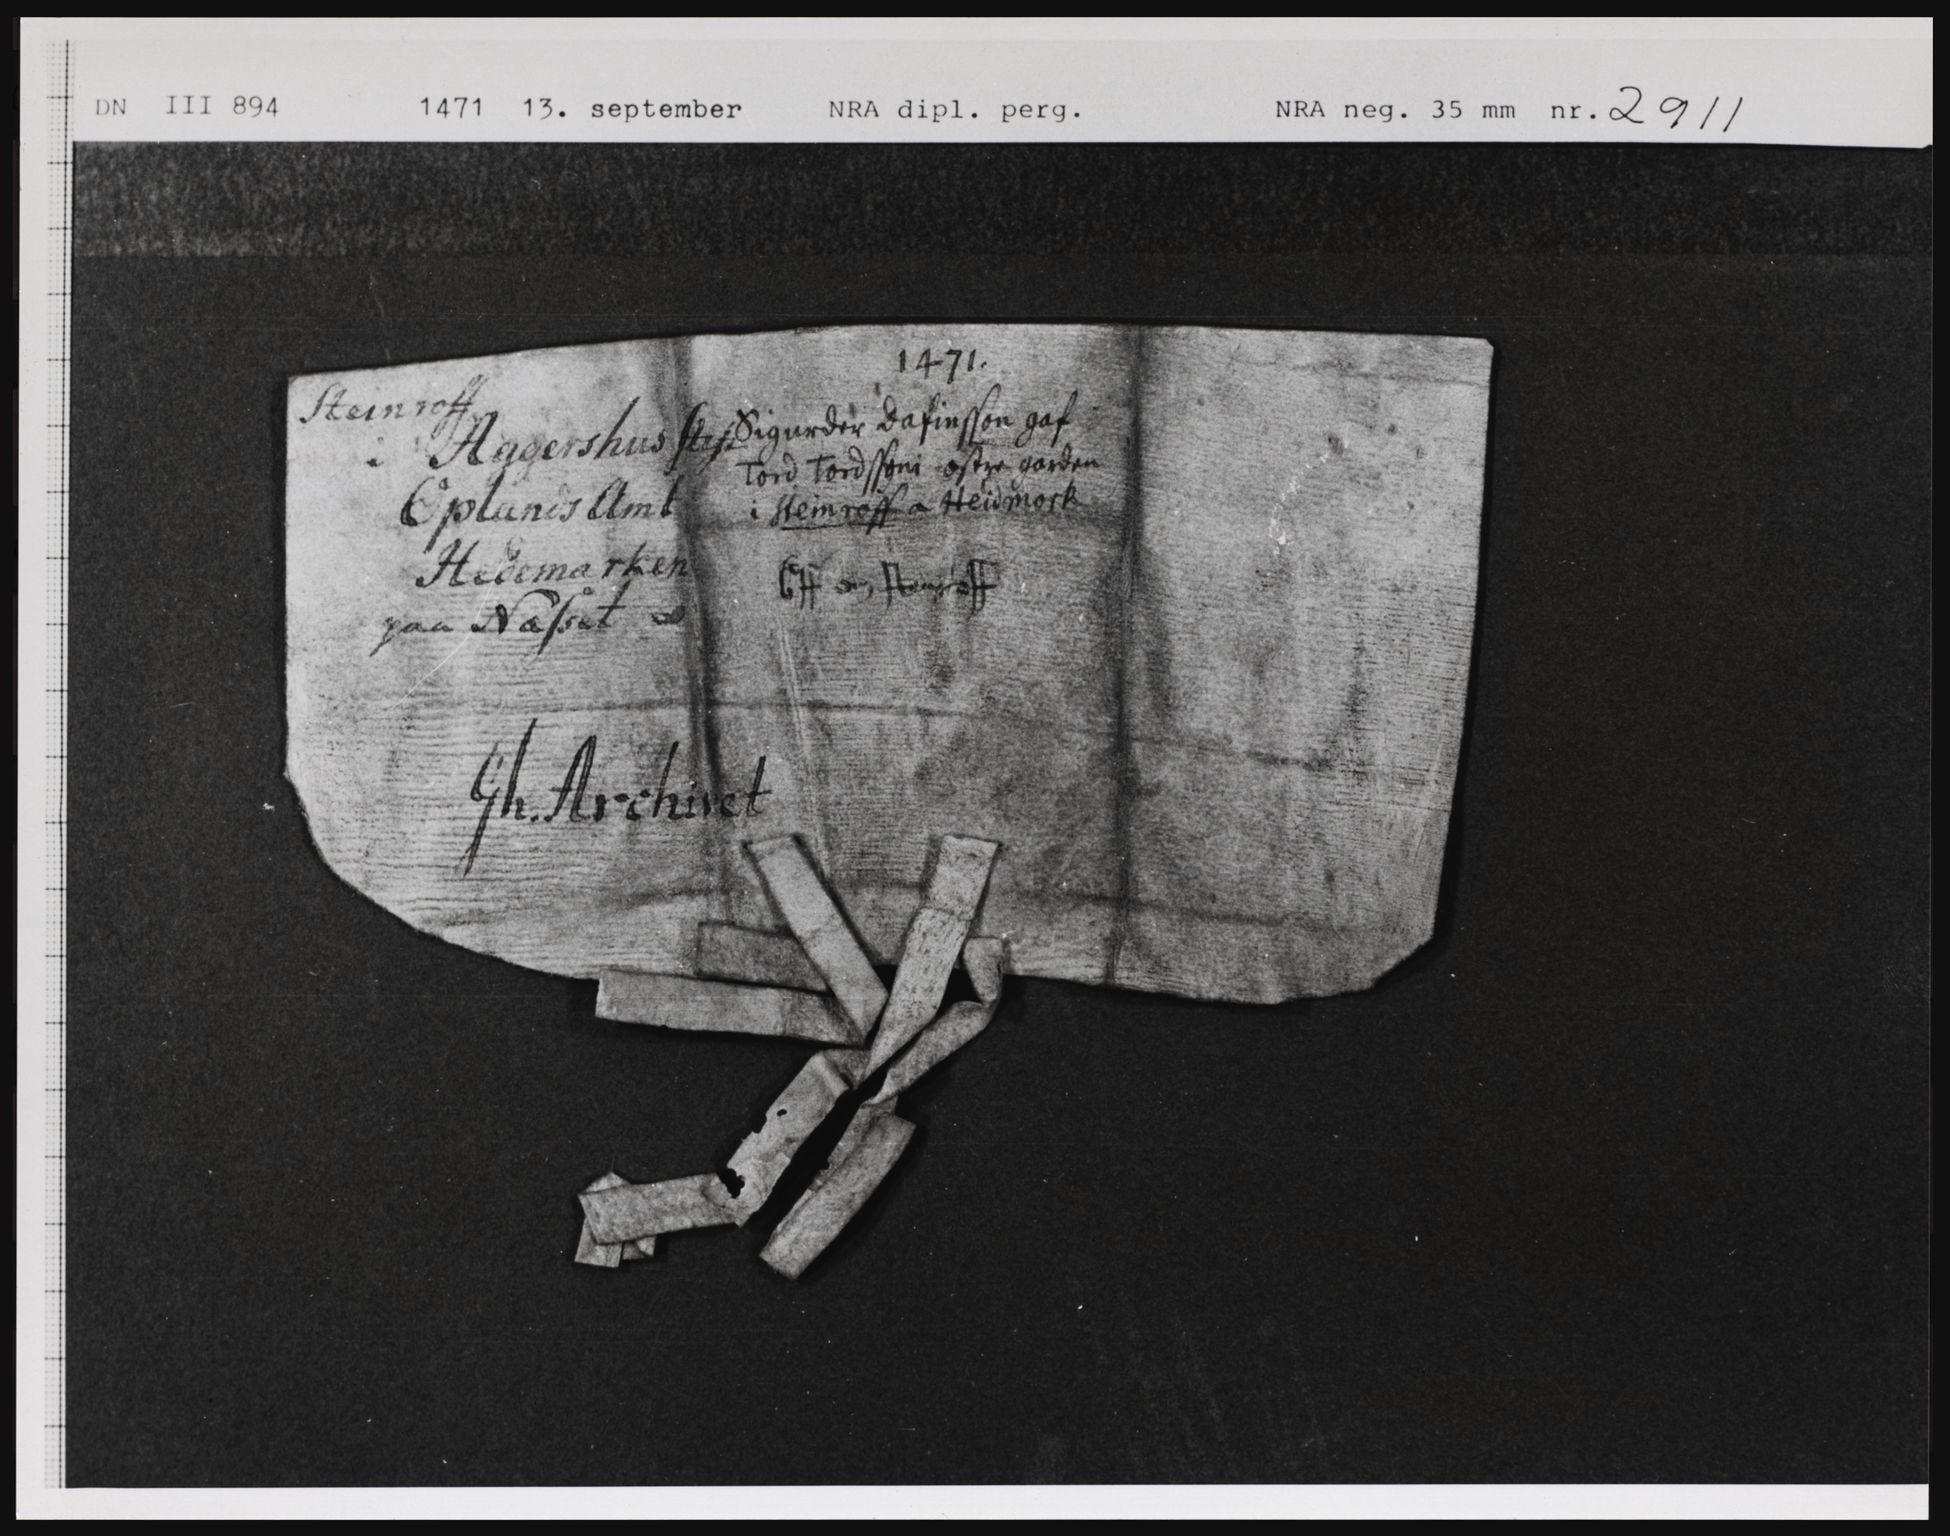 DN III 894 1471 13. september NRA dipl. perg. NRA neg. 35 mm nr. 2911
1471.
Steinroff
i Aggershus stift
Oplands Amt
Hedemarken
paa Næsset
Sigurder Dafinsson gaf
Tord Tordssoni østre garden
i Steinroff a Heidmork
Gh. Archivet